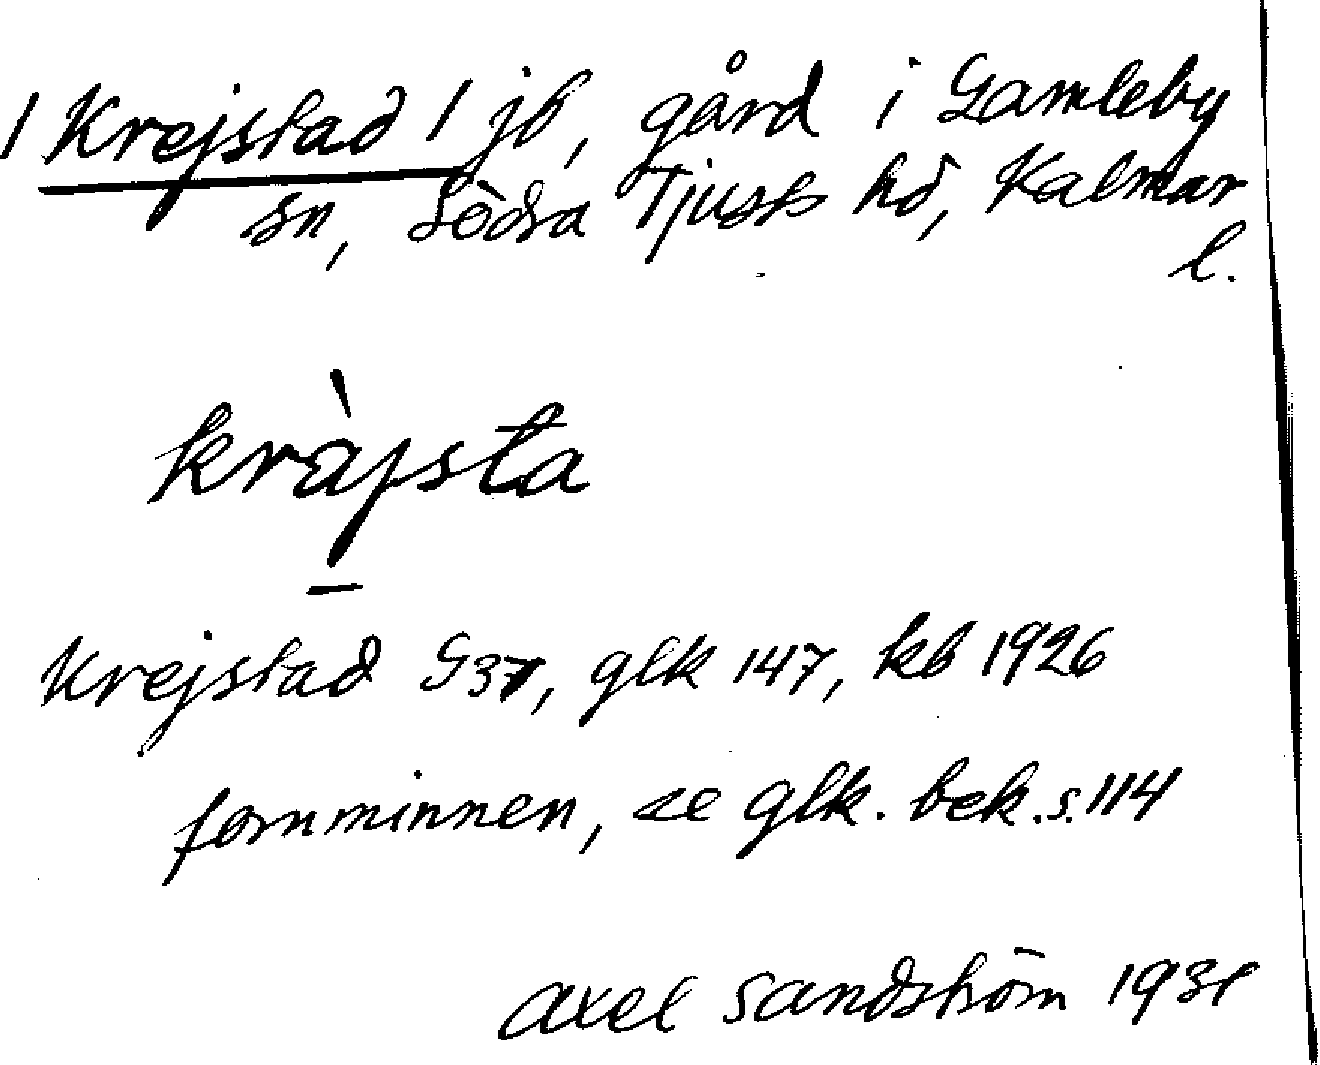 / Krejstad / jb, gård i Gamleby
sn, Södra Tjusts hd, Kalmar
l.
kràjsta
Krejstad G37, glk 147, kb 1926
fornminnen, se glk. bek. s. 114
Axel Sandström 1931